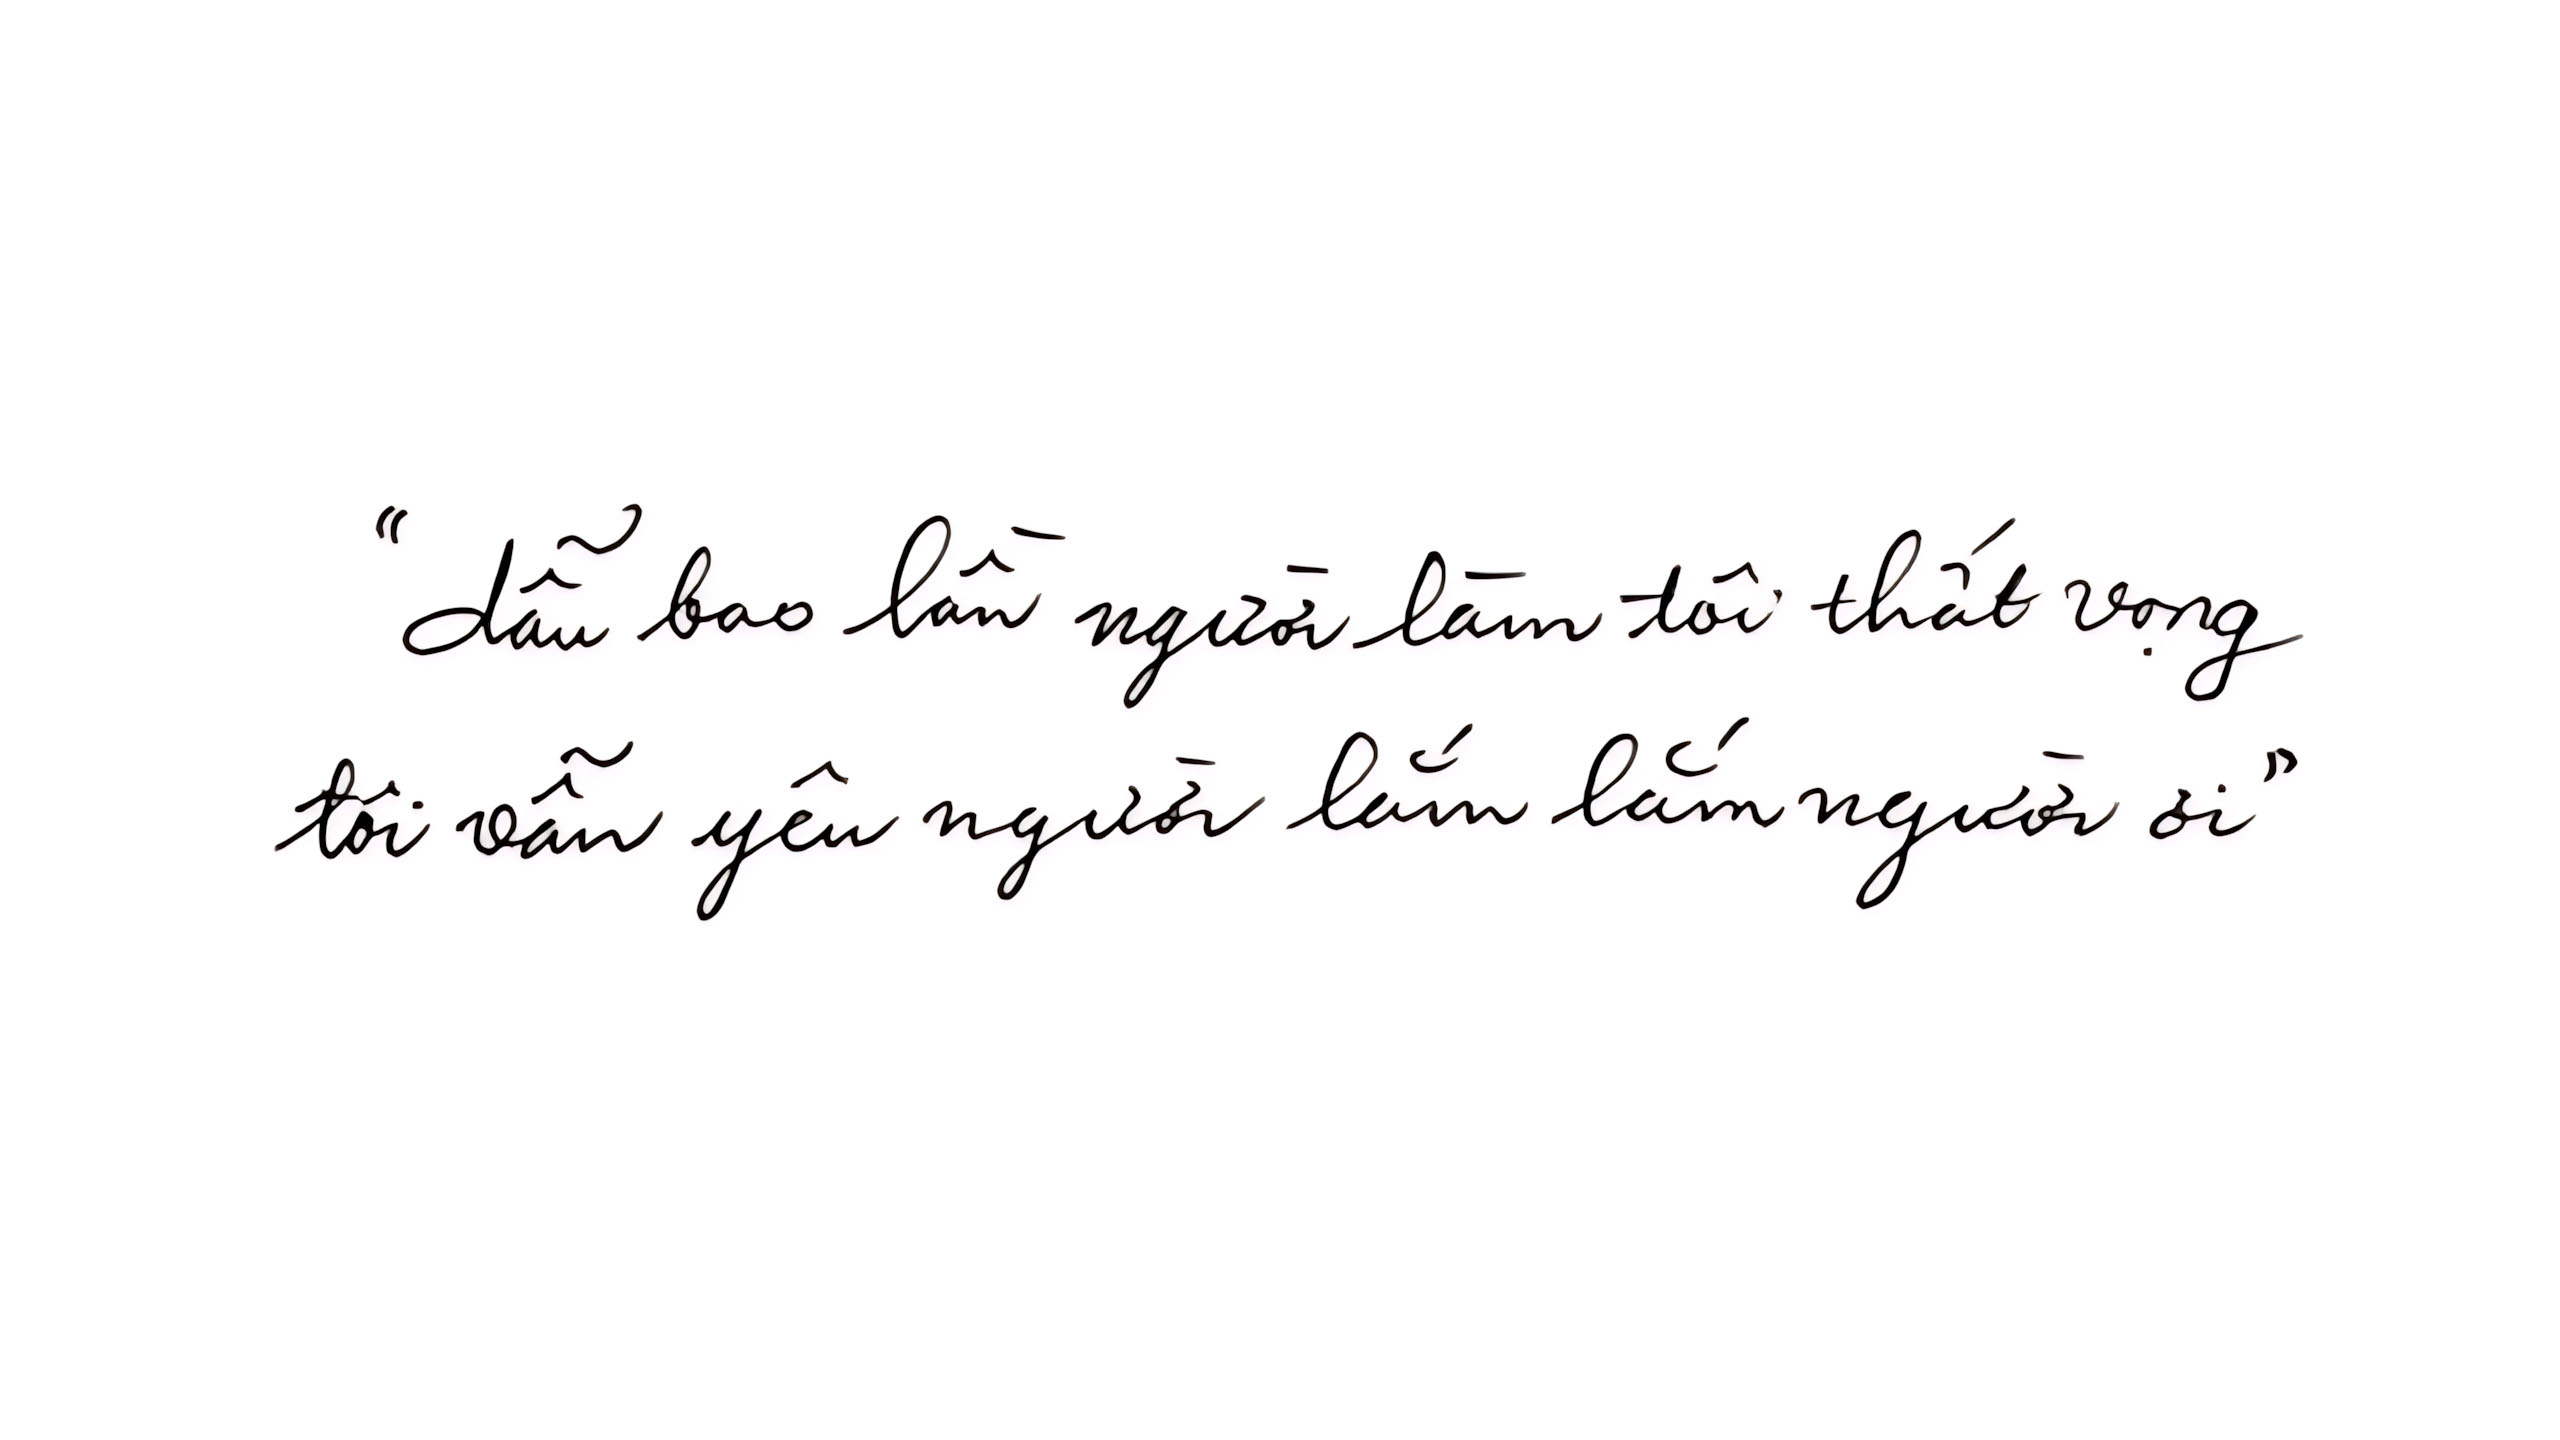 “dẫu bao lần người làm tôi thất vọng
tôi vẫn yêu người lắm lắm người ơi”